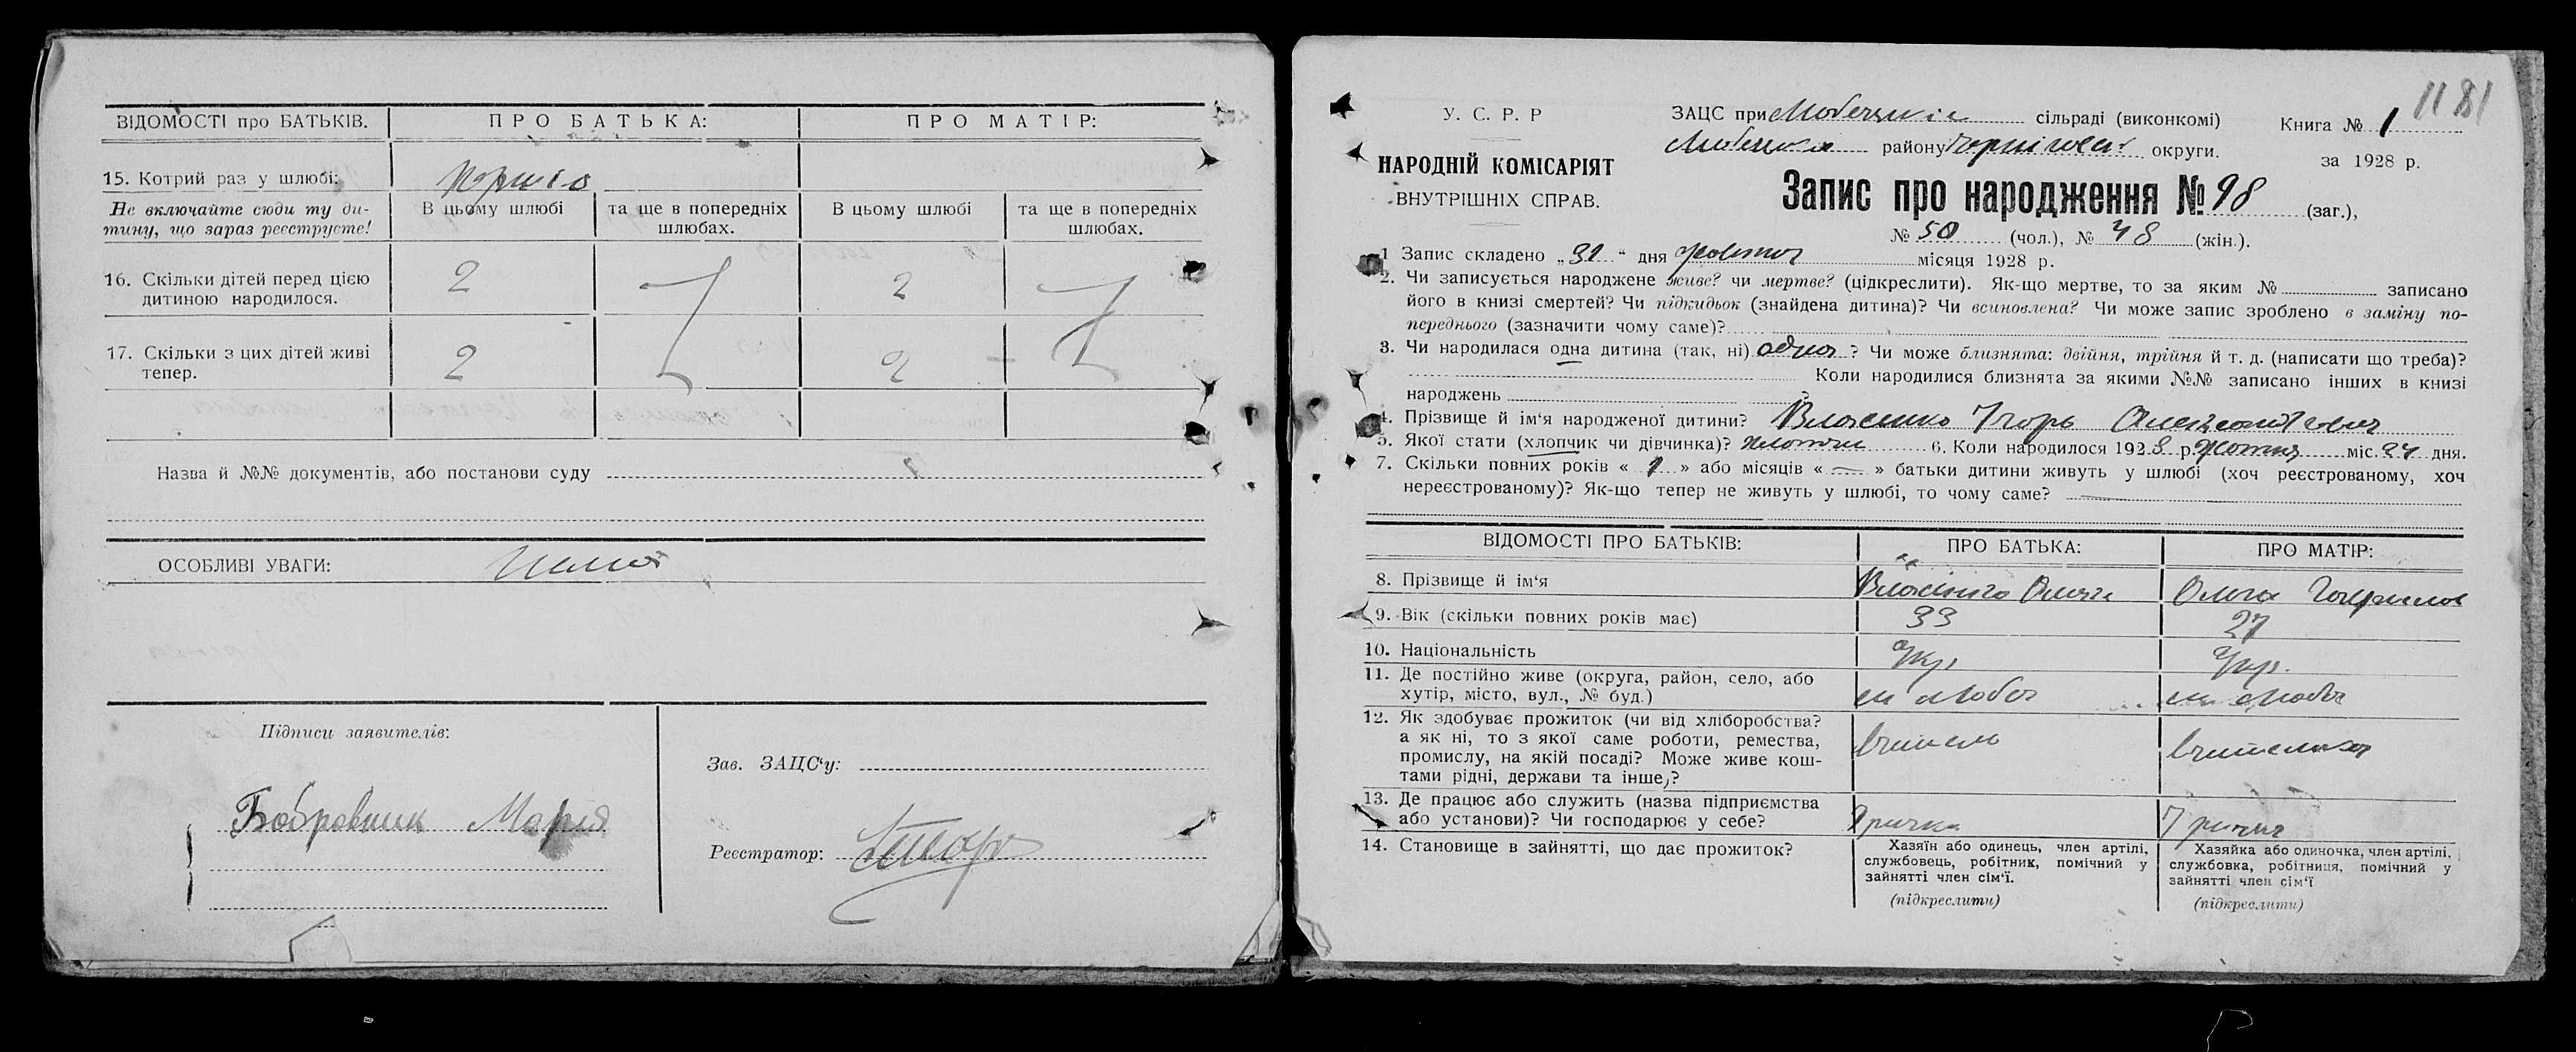 ВІДОМОСТІ про БАТЬКІВ. ПРО БАТЬКА: ПРО МАТІР:
15. Котрий раз у шлюбі:
Не включайте сюди ту ди-
тину, що зараз реєструєте!
В цьому шлюбі
та ще в попередніх
шлюбах.
В цьому шлюбі
та ще в попередніх
шлюбах.
16. Скільки дітей перед цією
дитиною народилося.
2 2
17. Скільки з цих дітей живі
тепер.
2 2
Назва й №№ документів, або постанови суду
ОСОБЛИВІ УВАГИ:
Підписи заявителів:
Бобровник Мария
Зав. ЗАЦС‘у:
Реєстратор:
1181
У. С. Р. Р
НАРОДНІЙ КОМІСАРІЯТ
ВНУТРІШНІХ СПРАВ.
ЗАЦС при сільраді (виконкомі)
району округи.
Книга № 1
за 1928 р.
Запис про народження № 98 (заг.),
№ 50 (чол.), № 48 (жін.).
1 Запис складено „31“ дня жовтня місяця 1928 р.
2. Чи записується народжене живе? чи мертве? (цідкреслити). Як-що мертве, то за яким № записано
його в книзі смертей? Чи підкидьок (знайдена дитина)? Чи всиновлена? Чи може запис зроблено в заміну по-
переднього (зазначити чому саме)?
3. Чи народилася одна дитина (так, ні) одна ? Чи може близнята: двійня, трійня й т. д. (написати що треба)?
Коли народилися близнята за якими №№ записано інших в книзі
народжень
4. Прізвище й ім‘я народженої дитини? Власенко Ігорь
5. Якої стати (хлопчик чи дівчинка)? хлопчик 6. Коли народилося 1928 р. жовтня міс. 24 дня.
7. Скільки повних років « » або місяців « — » батьки дитини живуть у шлюбі (хоч реєстрованому, хоч
нереєстрованому)? Як-що тепер не живуть у шлюбі, то чому саме?
ВІДОМОСТІ ПРО БАТЬКІВ: ПРО БАТЬКА: ПРО МАТІР:
8. Прізвище й ім‘я
Ольга
9. Вік (скільки повних років має) 33 27
10. Національність Укр. Укр.
11. Де постійно живе (округа, район, село, або
хутір, місто, вул., № буд.)
м Любеч м Любеч
12. Як здобуває прожиток (чи від хліборобства?
а як ні, то з якої саме роботи, ремества,
промислу, на якій посаді? Може живе кош-
тами рідні, держави та інше,?
вчитель вчителька
13. Де працює або служить (назва підприємства
або установи)? Чи господарює у себе?
14. Становище в зайнятті, що дає прожиток?
Хазяїн або одинець, член артілі,
службовець, робітник, помічний у
зайнятті член сім‘ї.
(підкреслити)
Хазяйка або одиночка, член артілі,
службовка, робітниця, помічний у
зайнятті член сім‘ї
(підкреслити)